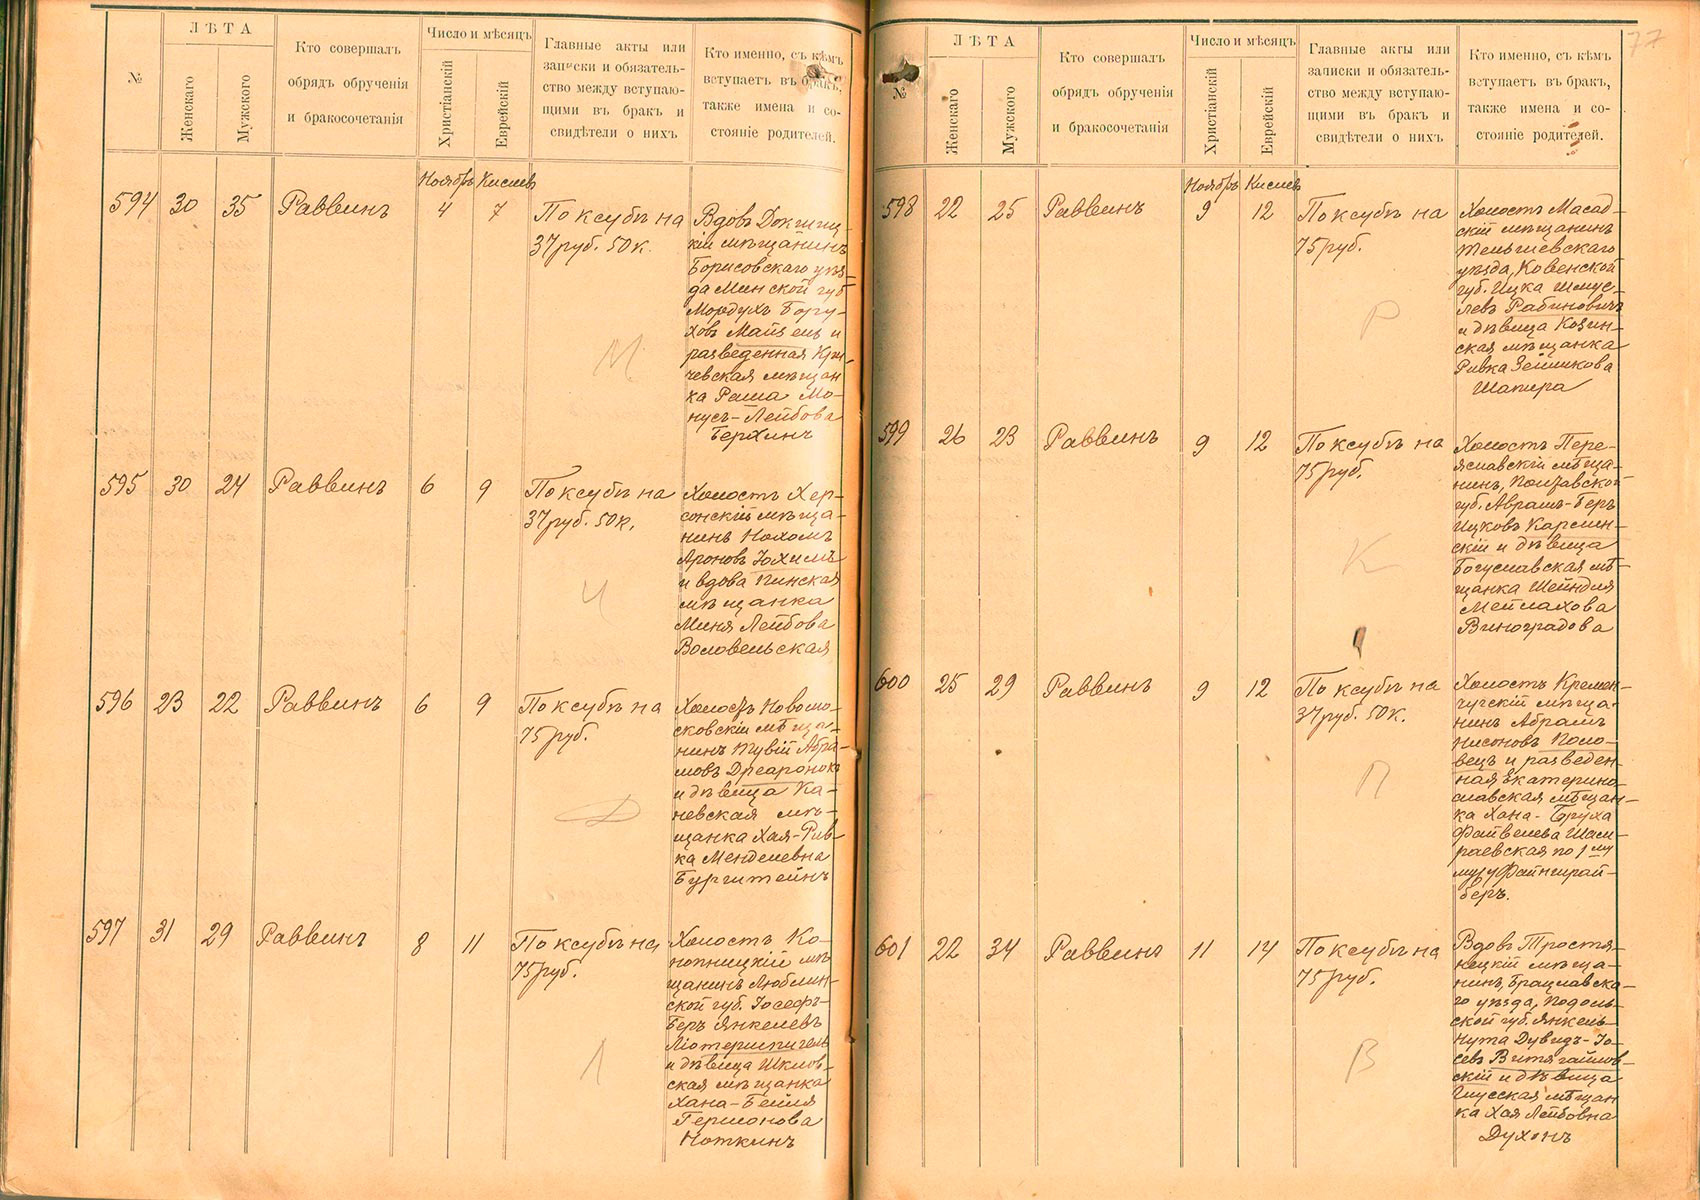 №
ЛѢТА
Женскаго
Мужского
Кто совершалъ
обрядъ обрученія
и бракосочетанія
Число и мѣсяцъ
Христіанскій
Еврейскій
Главные акты или
записки и обязатель-
ство между вступаю-
щими въ бракъ и
свидѣтели о нихъ
Кто именно, съ кѣмъ
вступаетъ въ бракъ,
также имена и со-
стояніе родителей.
Ноябрь Кислевъ
594 30 35 Раввинъ 4 7
По ксубѣ на
37 руб. 50 к.
Вдовъ Докшиц-
кій мѣщанинъ
Борисовскаго уѣз-
да Минской губ
Мордухъ Бору-
ховъ Майзель и
разведенная Кри-
чевская мѣщан
ка Раша Мо-
нусъ-Лейбова
Берхинъ
М
595 30 24 Раввинъ 6 9
По ксубѣ на
37 руб. 50 к.
Холостъ Хер-
сонскій мѣща-
нинъ Нохомъ
Ароновъ Іохимъ
и вдова Пинская
мѣщанка
Миня Лейбова
Воловельская
596 23 22 Раввинъ 6 9
По ксубѣ на
75 руб.
Холостъ Новомо-
сковскій мѣща-
нинъ Тувій Абра-
мовъ
и дѣвица Ка-
невская мѣ-
щанка Хая-Рив-
ка Менделевна
Бургштейнъ
Д
597 31 29 Раввинъ 8 11
По ксубѣ на
75 руб.
Холостъ Ко-
нопницкій мѣ
щанинъ Люблин-
ской губ. Іосефъ-
Беръ Янкелевъ
и дѣвица Шклов-
ская мѣщанка
Хана-Бейля
Гершонова
Ноткинъ
Л
77
№
ЛѢТА
Женскаго
Мужского
Кто совершалъ
обрядъ обрученія
и бракосочетанія
Число и мѣсяцъ
Христіанскій
Еврейскій
Главные акты или
записки и обязатель-
ство между вступаю-
щими въ бракъ и
свидѣтели о нихъ
Кто именно, съ кѣмъ
вступаетъ въ бракъ,
также имена и со-
стояніе родителей.
Ноябрь Кислевъ
598 22 25 Раввинъ 9 12
По ксубѣ на
75 руб.
Холостъ Масад-
скій мѣщанинъ
Тельшевскаго
уѣзда, Ковенской
губ. Ицка Шмуе-
левъ Рабиновичъ
и дѣвица Козин-
ская мѣщанка
Ривка Зеликова
Шапира
Р
599 26 23 Раввинъ 9 12
По ксубѣ на
75 руб.
Холостъ Пере-
яславскій мѣща-
нинъ, Полтавской
губ. Абрамъ-Беръ
Ицковъ Карслин-
скій и дѣвица
Богуславская мѣ-
щанка Шейндля
Мейлахова
Виноградова
К
600 25 29 Раввинъ 9 12
По ксубѣ на
37 руб. 50 к.
Холостъ Кремен-
чугскій мѣща-
нинъ Абрамъ
Нисоновъ Поло-
вецъ и разведен-
ная Екатерино-
славская мѣщан-
ка Хана-Бруха
Файвелева Шам-
раевская по 1му
мужу Файнгирай-
беръ.
П
601 22 34 Раввинъ 11 14
По ксубѣ на
75 руб.
Вдовъ Тростя-
нецкій мѣща-
нинъ, Брацлавска-
го уѣзда, Подоль-
ской губ. Янкель-
Нута Дувидъ-Іо-
севъ Витязаилов-
скій и дѣвица
Глусская мѣщан
ка Хая Лейбовна
Духонъ
В